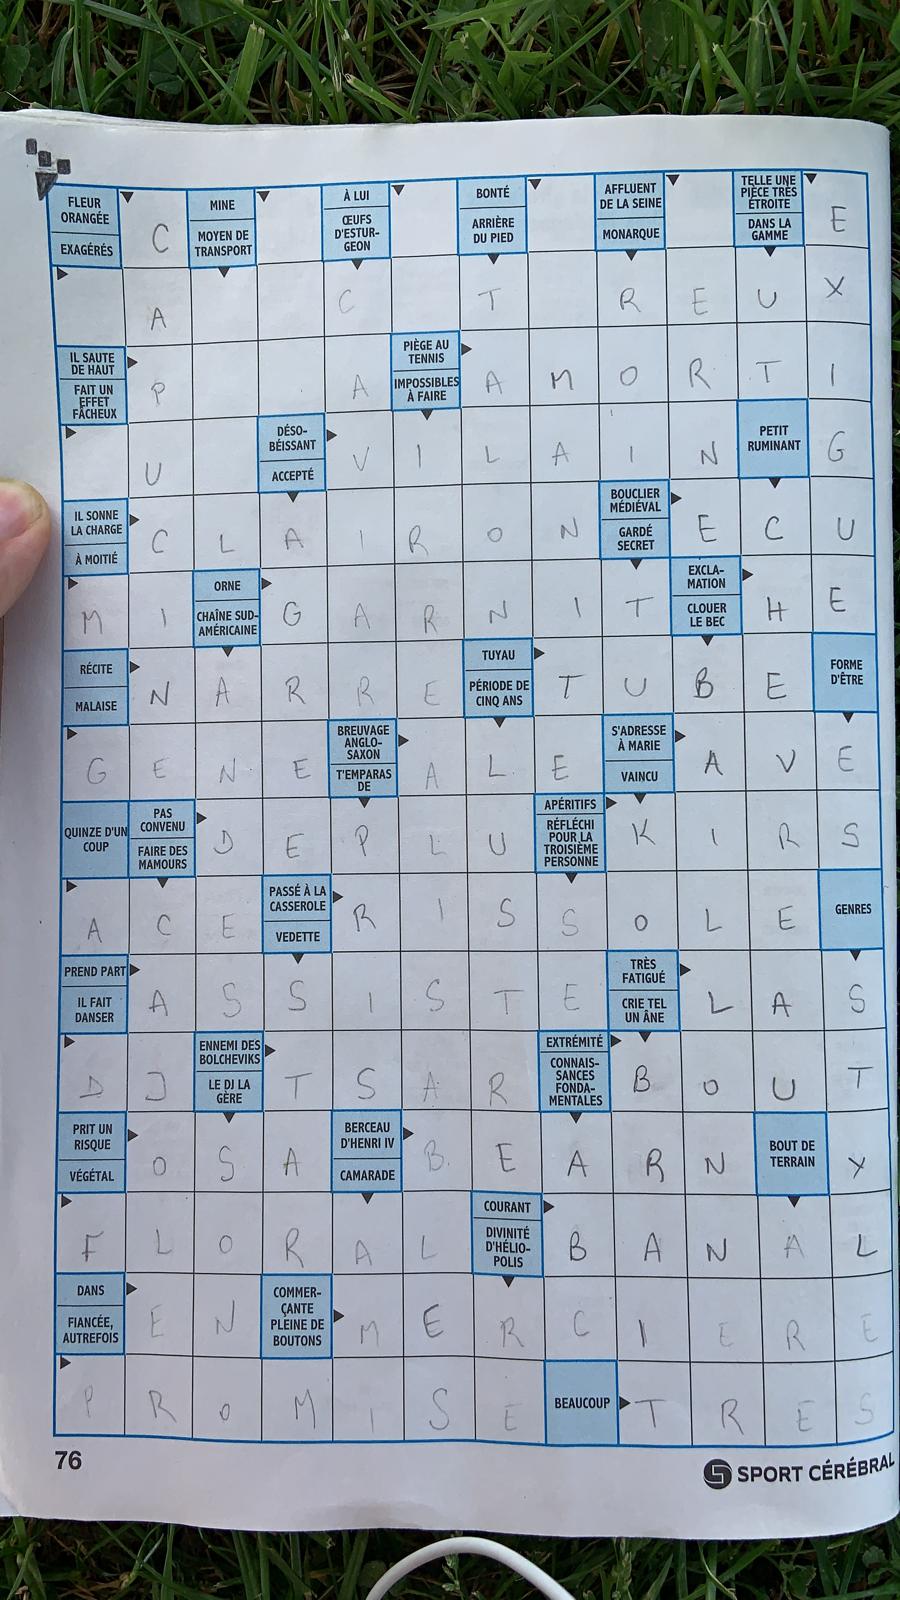 FLEUR ORANGÉE
EXAGÉRÉS
C
MINE
MOYEN DE TRANSPORT
À LUI
ŒUFS D'ESTUR-GEON
BONTÉ
ARRIÈRE DU PIED
AFFLUENT DE LA SEINE
MONARQUE
TELLE UNE PIÈCE TRÈS ÉTROITE
DANS LA GAMME
E
A C T R E U X
IL SAUTE DE HAUT
FAIT UN EFFET FÂCHEUX
P A
PIÈGE AU TENNIS
IMPOSSIBLES À FAIRE
A M O R T I
U
DÉSO-BÉISSANT
ACCEPTÉ
V I L A I N
PETIT RUMINANT
G
IL SONNE LA CHARGE
À MOITIÉ
C L A I R O N
BOUCLIER MÉDIÉVAL
GARDÉ SECRET
E C U
M I
ORNE
CHAÎNE SUD-AMÉRICAINE
G A R N I T
EXCLA-MATION
CLOUER LE BEC
H E
RÉCITE
MALAISE
N A R R E
TUYAU
PÉRIODE DE CINQ ANS
T U B E
FORME D'ÊTRE
G E N E
BREUVAGE ANGLO-SAXON
T'EMPARAS DE
A L E
S'ADRESSE À MARIE
VAINCU
A V E
QUINZE D'UN COUP
PAS CONVENU
FAIRE DES MAMOURS
D E P L U
APÉRITIFS
RÉFLÉCHI POUR LA TROISIÈME PERSONNE
K I R S
A C E
PASSÉ À LA CASSEROLE
VEDETTE
R I S S O L E
GENRES
PREND PART
IL FAIT DANSER
A S S I S T E
TRÈS FATIGUÉ
CRIE TEL UN ÂNE
L A S
D J
ENNEMI DES BOLCHEVIKS
LE DJ LA GÈRE
T S A R
EXTRÉMITÉ
CONNAIS-SANCES FONDA-MENTALES
B O U T
PRIT UN RISQUE
VÉGÉTAL
O S A
BERCEAU D'HENRI IV
CAMARADE
B E A R N
BOUT DE TERRAIN
Y
F L O R A L
COURANT
DIVINITÉ D'HÉLIO-POLIS
B A N A L
DANS
FIANCÉE, AUTREFOIS
E N
COMMER-ÇANTE PLEINE DE BOUTONS
M E R C I E R E
P R O M I S E
BEAUCOUP
T R E S
76
SPORT CÉRÉBRAL